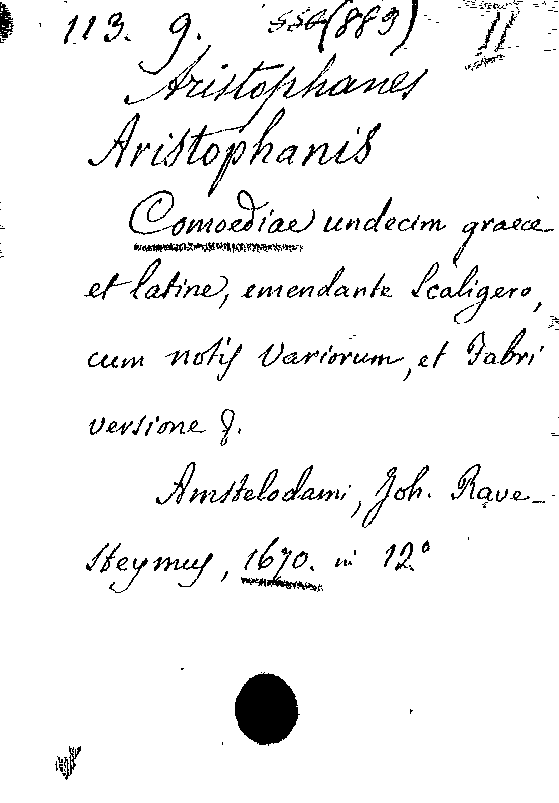 113. 9. 554(883) II
Aristophanes
Aristophanis
Comoediae undecim graece
et latine, emendante Scaligero,
cum notis Variorum, et Fabri
versione &.
Amstelodami, Joh. Rave-
steynius, 1670. in 12°